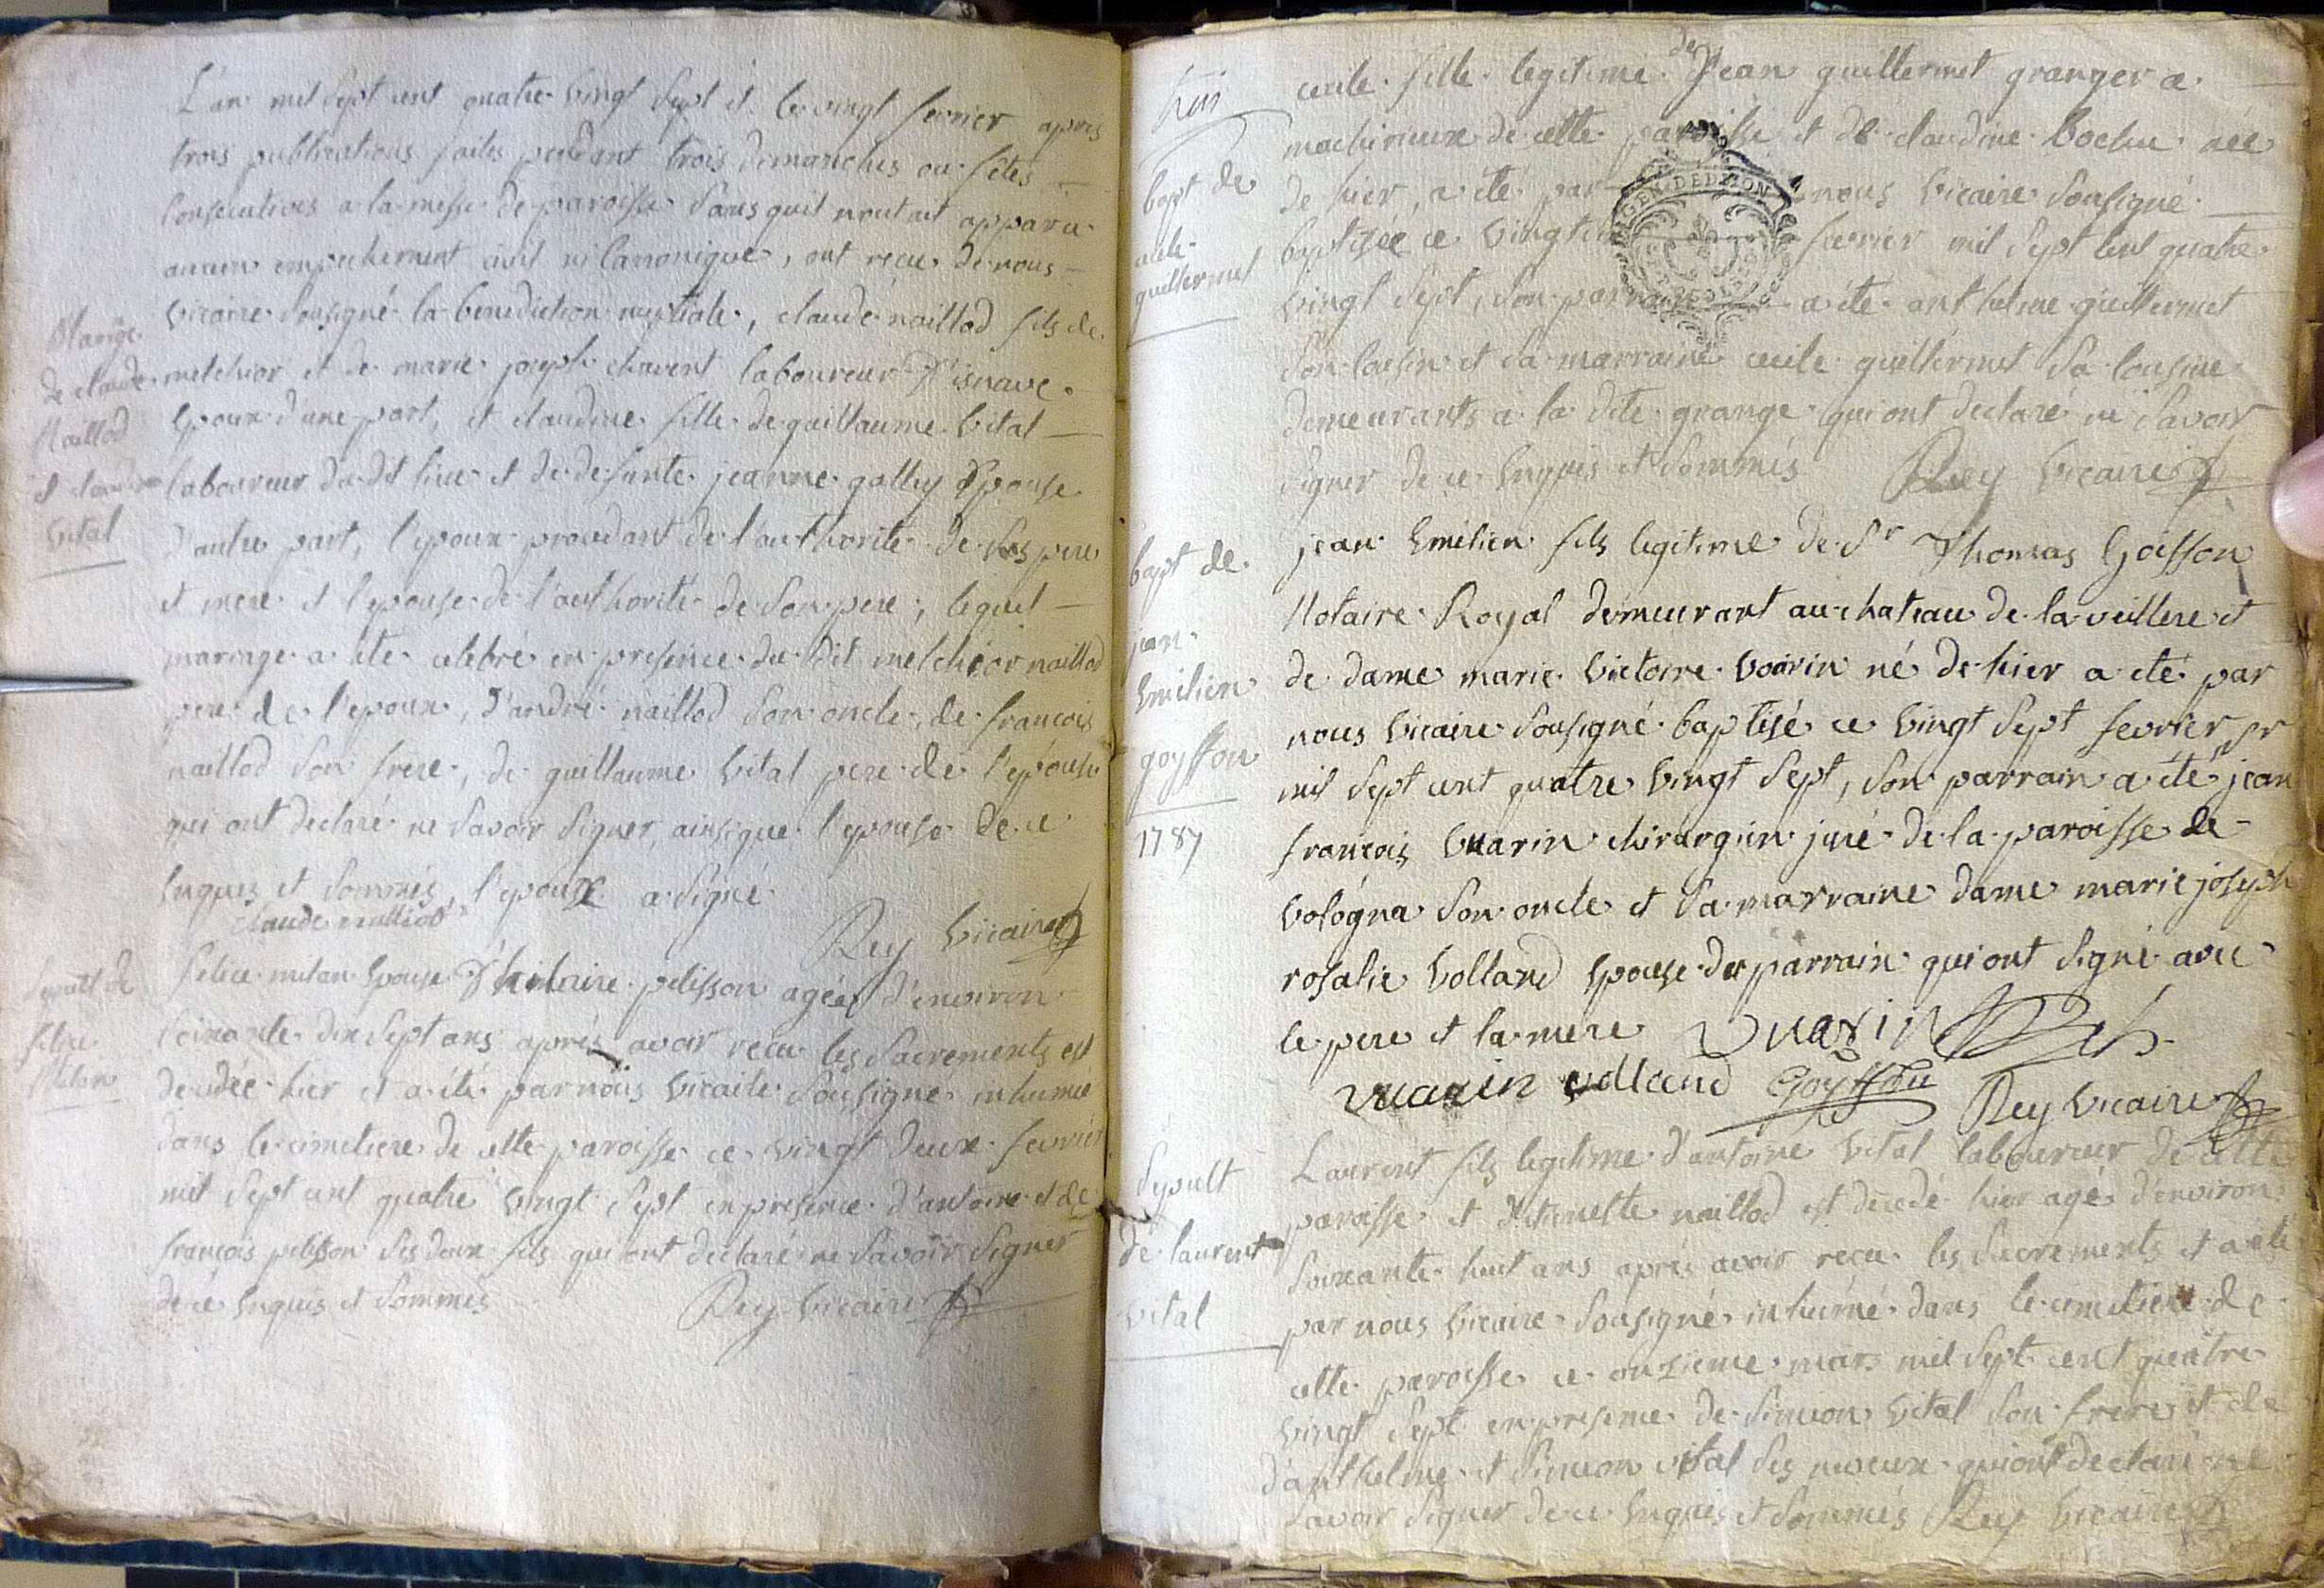 L'an mil sept cent quatre vingt sept et le vingt fevrier apres
trois publications faites pendant trois dimanches ou fêtes
consecutives a la messe de paroisse sans quil nous ait apparu
aucun empechement civil ni canonique, ont recu de nous
vicaire sousigné la benediction nuptiale, claude naillod fils de
Mariage
de claude
Naillod
et claudine
vital
melchior et de marie joseph chavent laboureur d'isnave
epoux d'une part, et claudine fille de guillaume vital
laboureur du dit lieu et de defunte jeanne galley epouse
d'autre part, l'epoux procedant de l'authorité de ses pere
et mere et l'epouse de l'authorité de son pere, lequel
mariage a eté celebré en presence du dit melchior naillod
pere de l'epoux, d'andré naillod son oncle, de francois
naillod son frere, de guillaume vital pere de l'epouse
qui ont declaré ne savoir signer, ainsi que l'epouse de ce
enquis et sommés, l'epoux a signé
claude nalliod
Rey vicaire
Sepult de
felice
Milan
felice milan epouse d'hilaire pelisson agée d'environ
soixante dix sept ans après avoir recu les sacrements est
decedée hier et a été par nous vicaire sousigné inhumée
dans le cimetiere de cette paroisse ce vingt deux fevrier
mil sept cent quatre vingt sept en presence d'antoine et de
francois pelisson ses deux fils qui ont declaré ne savoir signer
de ce enquis et sommés Rey vicaire
bapt de
cecile
guillermet
cecile fille legitime de Jean guillermet granger a
machinieux de cette paroisse et de claudine bochu née
de hier, a eté par nous vicaire sousigné
baptisée ce fevrier mil sept cent quatre
GEN. DE DIJON
vingt sept, son parrain a été anthelme guillermet
son cousin et sa marraine cecile guillermet sa cousine
demeurants a la dite grange qui ont declaré ne savoir
signer de ce enquis et sommés Rey vicaire
bapt de
jean
emilien
goyffon
1787
jean emilien fils legitime de Sr Thomas Goiffon
Notaire Royal demeurant au chateau de la veillere et
de dame marie victoire voarin né de hier a eté par
nous vicaire sousigné baptisé ce vingt sept fevrier
mil sept cent quatre vingt sept, son parrain a été sr jean
francois vuarin chirurgien juré de la paroisse de
vologna son oncle et sa marraine dame marie joseph
rosalie volland epouse du parrain qui ont signé avec
le pere et la mere vuarin
vuarin volland Goyffon Rey vicaire
Sepult
de laurent
vital
Laurent fils legitime d'antoine vital laboureur de cette
paroisse et d'etienette naillod est decedé hier agé d'environ
soixante huit ans après avoir recu les sacrements et a été
par nous vicaire sousigné inhumé dans le cimetiere de
cette paroisse ce onzieme mars mil sept cent quatre
vingt sept en presence de simeon vital son frere et de
d'anthelme et simeon vital ses neveux qui ont declaré ne
savoir signer de ce enquis et sommés Rey vicaire